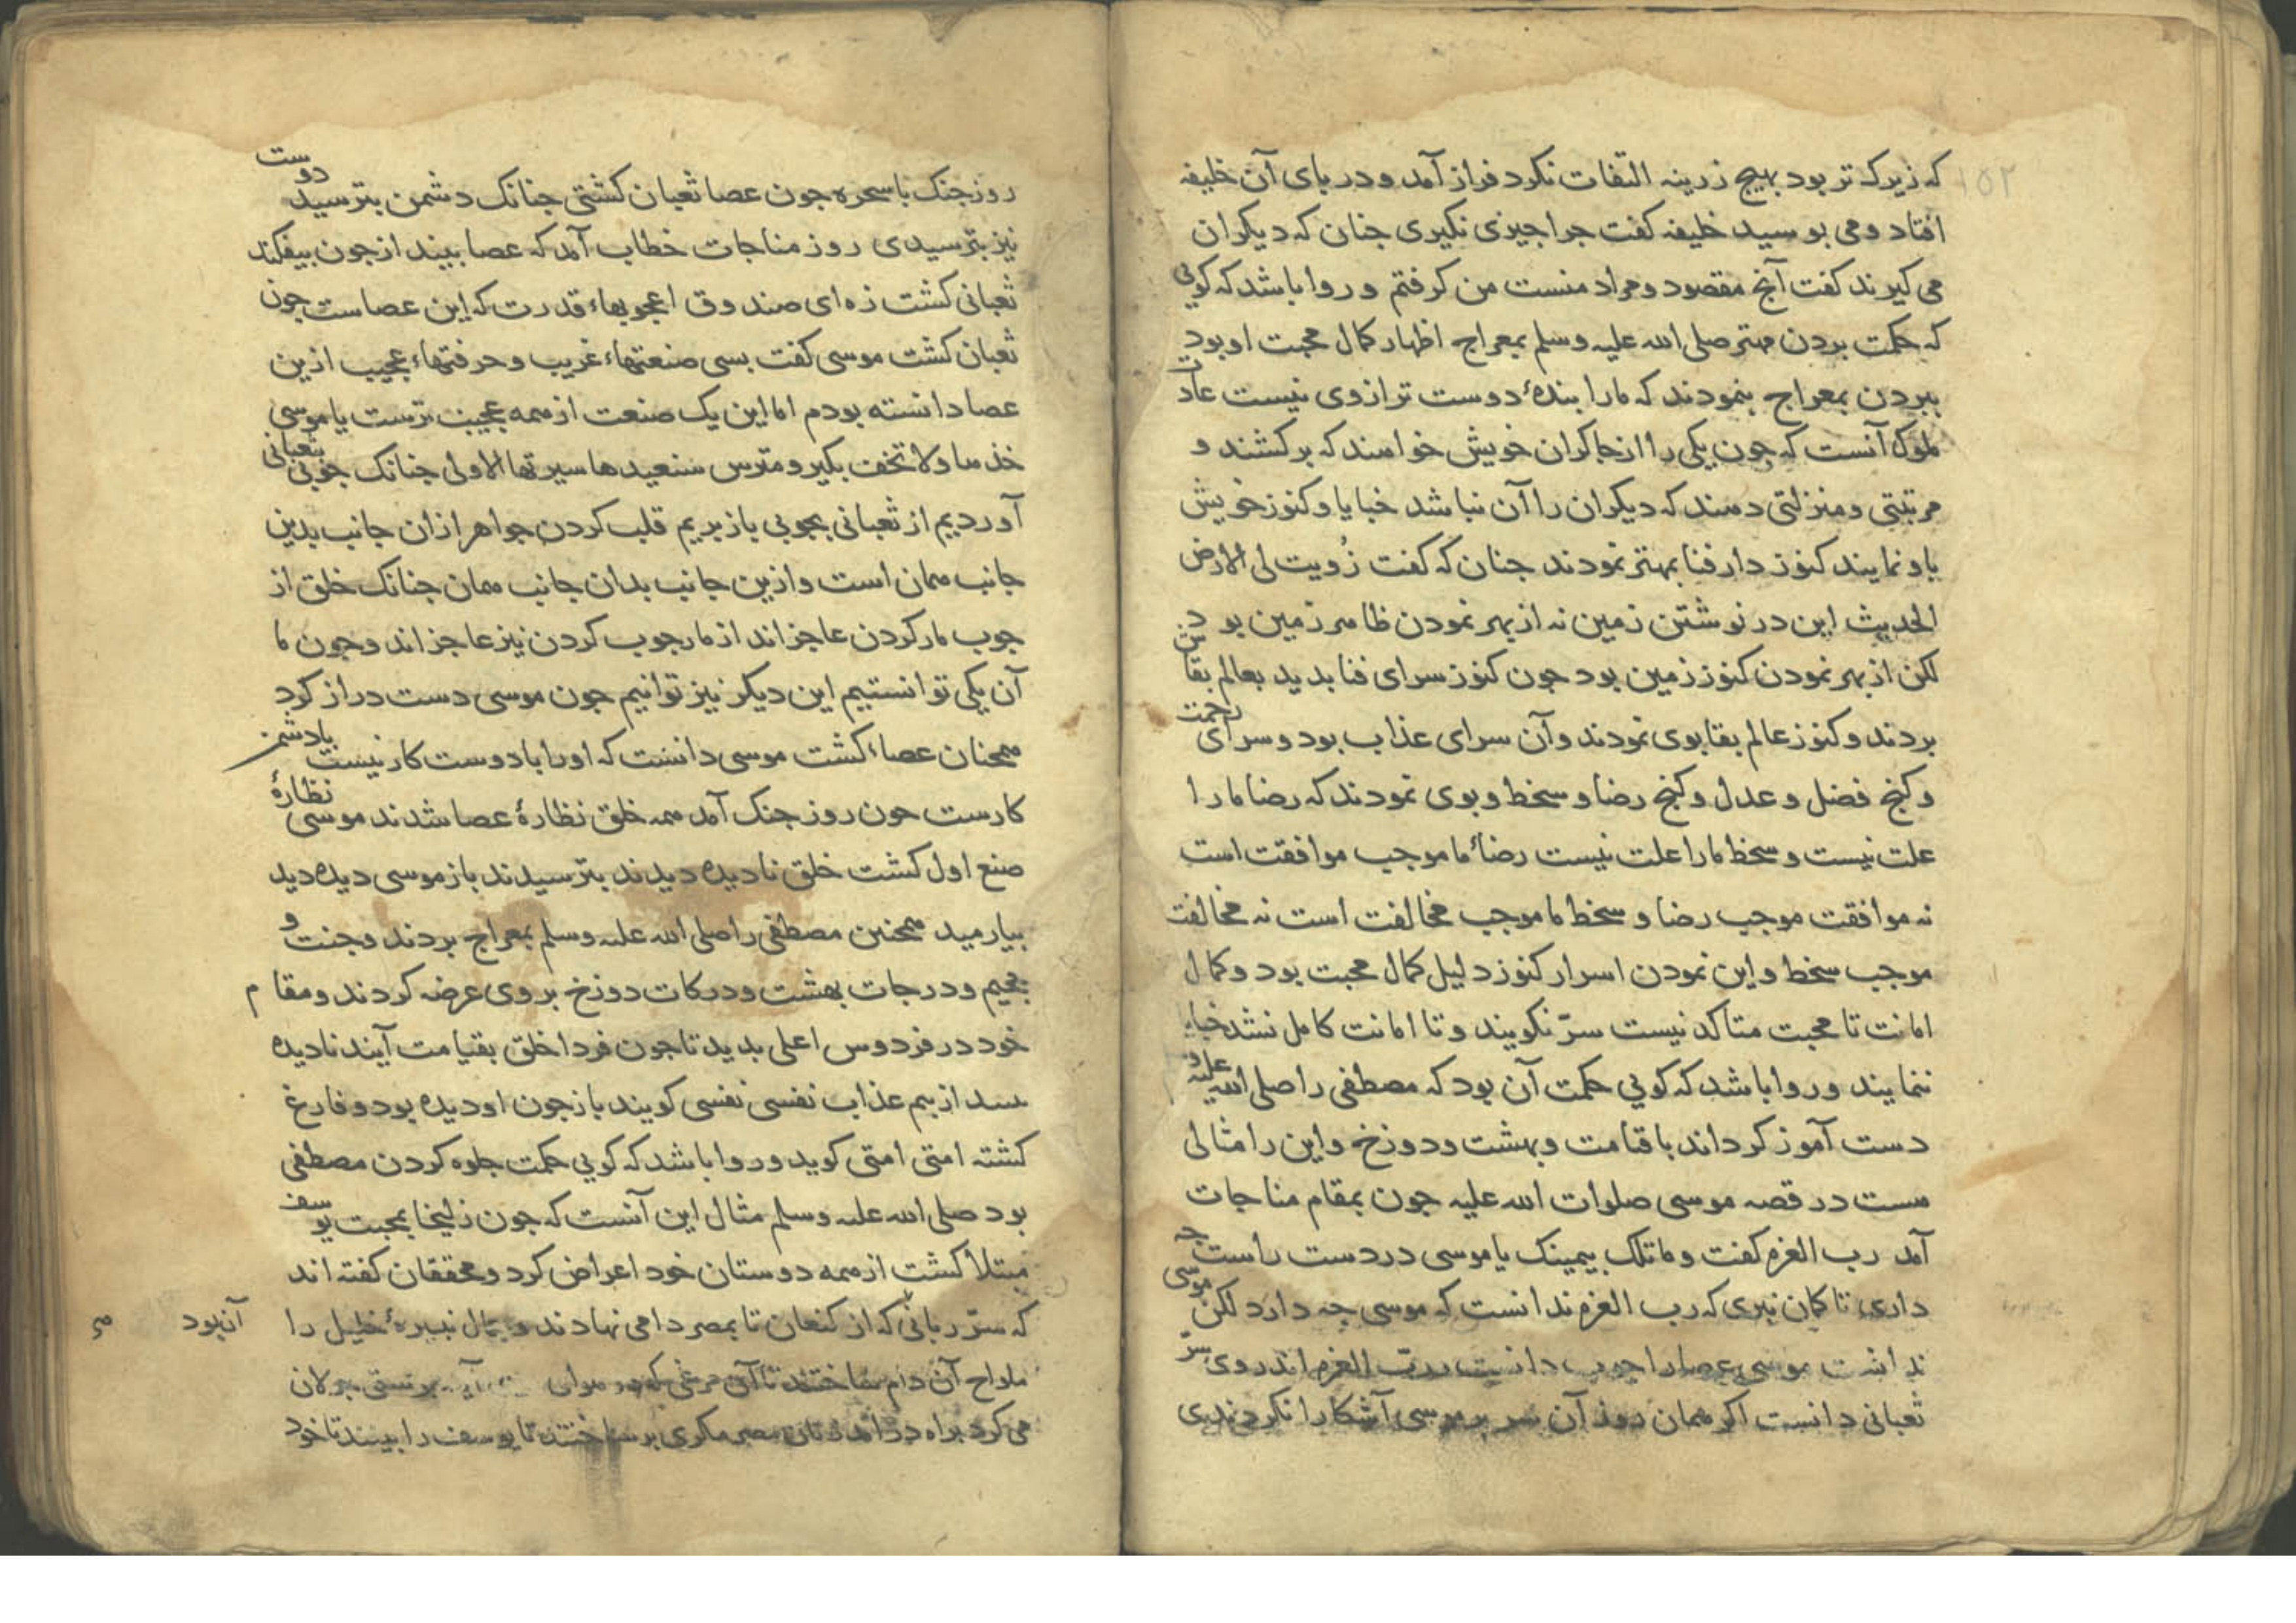 ۱۵۲
که زیرک تر بود بهیچ زرینه التفات نکرد فراز آمد و در بای آن خلیفه
افتاد و می بوسید خلیفه کفت جرا جیزی نکیری جنان که دیکران
می کیرند کفت آنج مقصود و مراد منست من کرفتم و روا باشد که کویی
که حکمت بردن مهتر صلی الله علیه وسلم بمعراج اظهار کمال محبت او بود
ببردن بمعراج بنمودند که مارا بندهٔ دوست تر ازوی نیست عادت
ملوک آنست که جون یکی را از جاکران خویش خواهند که برکشند و
مرتبتی و منزلتی دهند که دیکران را آن نباشد خبایا و کنوز خویش
باو نمایند کنوز دار فنا بمهتر نمودند جنان که کفت زُویت لی الارض
الحدیث این در نوشتن زمین نه از بهر نمودن ظاهر زمین بود
لکن از بهر نمودن کنوز زمین بود جون کنوز سرای فنا بدید بعالم بقاش
بردند و کنوز عالم بقا بوی نمودند و آن سرای عذاب بود و سرای رحمت
و کنج فضل و عدل و کنج رضا و سخط و بوی نمودند که رضا مارا
علت نیست و سخط مارا علت نیست رضائ ما موجب موافقت است
نه موافقت موجب رضا و سخط ما موجب مخالفت است نه مخالفت
موجب سخط و این نمودن اسرار کنوز دلیل کمال محبت بود و کمال
امانت تا محبت متاکد نیست سرّ نکویند و تا امانت کامل نشد خباء
ننمایند و روا باشد که کویی حکمت آن بود که مصطفی را صلی الله علیه و
دست آموز کرداند با قیامت و بهشت و دوزخ و این را مثالی
هست در قصه موسی صلوات الله علیه جون بمقام مناجات
آمد رب العزه کفت و ما تلک بیمینک یا موسی در دست راست جه
داری تا کمان نبری که رب العزه ندانست که موسی جه دارد لکن موسی
ندانست موسی عصارا جوب دانست ربّ العزه اندروی سرّ
ثعبانی دانست اکر همان روز آن سر بر موسی آشکارا نکردندی
روز جنک با سحره جون عصا ثعبان کشتی جنانک دشمن بترسید دوست
نیز بترسیدی روز مناجات خطاب آمد که عصا بیند از جون بیفکند
ثعبانی کشت زه ای صندوق اعجوبهاء قدرت که این عصاست جون
ثعبان کشت موسی کفت بسی صنعتهاء غریب و حرفتهاء عجیب ازین
عصا دانسته بودم اما این یک صنعت از همه عجیب ترست یا موسی
خذها ولا تخف بکیر و مترس سنعیدها سیرتها الاولی جنانک جوبی ثعبانی
آوردیم از ثعبانی بجوبی باز بریم قلب کردن جواهر ازان جانب بدین
جانب همان است و ازین جانب بدان جانب همان جنانک خلق از
جوب مار کردن عاجز اند از مار جوب کردن نیز عاجز اند و جون ما
آن یکی توانستیم این دیکر نیز توانیم جون موسی دست دراز کرد
همجنان عصاء کشت موسی دانست که اورا با دوست کار نیست با دشمن
کارست جون روز جنک آمد همه خلق نظارهٔ عصا شدند موسی نظارهٔ
صنع اول کشت خلق نادیده دیدند بترسیدند باز موسی دیده دید
بیارمید همجنین مصطفی را صلی الله علیه وسلم بمعراج بردند و جنت و
جحیم و درجات بهشت و درکات دوزخ بر وی عرضه کردند و مقام
خود در فردوس اعلی بدید تا جون فردا خلق بقیامت آیند نادیده
بیند از بیم عذاب نفسی نفسی کویند باز جون او دیده بود و فارغ
کشته امتی امتی کوید و روا باشد که کویی حکمت جلوه کردن مصطفی
بود صلی الله علیه وسلم مثال این آنست که جون زلیخا بمحبت یوسف
مبتلا کشت از همه دوستان خود اعراض کرد و محققان کفته اند
که سرّ ربانی که از کنعان تا بمصر دامی نهادند و جمال نبیرهٔ خلیل را
آن بود
ملواح آن دام ساختند تا آن مرغی که در هوای برستی جولان
می کرد براه در آمد زنان مصر مکری برساختند تا یوسف را ببینند تا خود